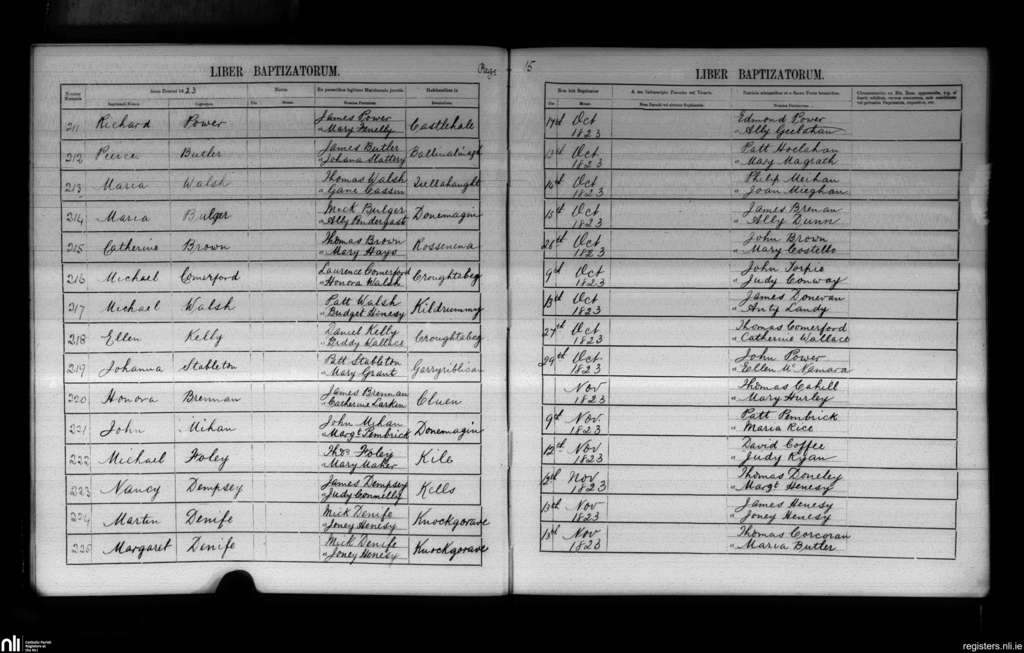 LIBER BAPTIZATORUM.
Page
15
LIBER BAPTIZATORUM.
Anno Domini 1823
211 Richard Power James Power Castlehale 17th Oct Edmond Power
" Mary Fenelly 1823 " Ally Geelahan
212 Pierce Butler James Butler Oct Patt Hoelahan
" Johana Slattery 1823 " Mary Magrath
213 Maria Walsh Thomas Walsh Oct Philip Meehan
" Jane Cassin 1823 " Joan Meeghan
214 Maria Bulger Mick Bulger Donemagin 15th Oct James Brenan
" Ally Pendergast 1823 " Ally Dunn
215 Catherine Brown Thomas Brown Rossenena 28th Oct John Brown
" Mary Hays 1823 " Mary Costello
216 Michael Comerford Laurence Comerford Croughtabeg 9th Oct John Torpie
" Honora Walsh 1823 " Judy Conway
217 Michael Walsh Patt Walsh Kildrummy Oct James Donevan
" Budget Henesy 1823 " Landy
218 Ellen Kelly Daniel Kelly Croughtabeg 27th Oct Thomas Comerford
" Biddy Wallace 1823 " Catherine Wallace
219 Johanna Stableton Patt Stableton Garryriblican 29th Oct John Power
" Mary Grant 1823 " Ellen McNamara
220 Honora Brennan James Brennan Cluen Nov Thomas Cahill
" Catherine Larkin 1823 " Mary Hurley
221 John Mihan John Mihan Donemagin 9th Nov Patt Pembrick
" Margt Pembrick 1823 " Maria Rice
222 Michael Foley Thos Foley Kile 12th Nov David Coffee
" Mary Maher 1823 " Judy Ryan
223 Nancy Dempsey James Dempsey Kells Nov Thomas Doneley
" Judy Connelly 1823 " Margt Henesy
224 Martin Denife Mick Denife Knockgorave 13th Nov James Henesy
" Joney Henesy 1823 " Joney Henesy
225 Margaret Denife Mick Denife Knockgorave 13th Nov Thomas Corcoran
" Joney Henesy 1823 " Maria Butler
nli
Catholic Parish
Registers at
the NLI
registers.nli.ie